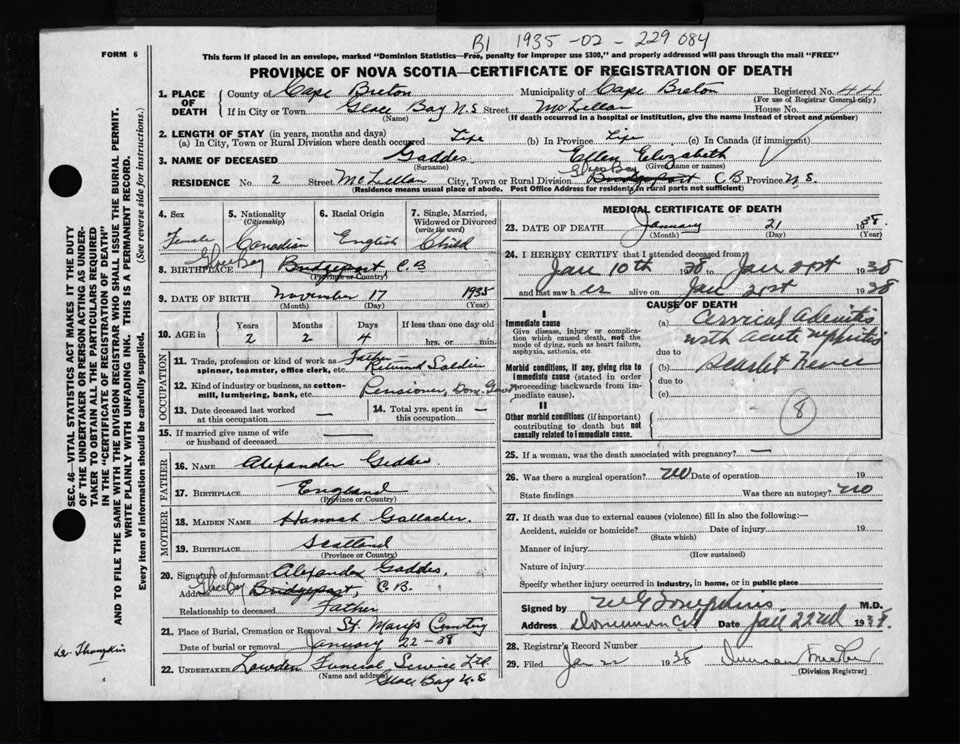 B1 1935-02-229084
FORM 6
This form if placed in an envelope, marked "Dominion Statistics—Free, penalty for improper use $300," and properly addressed will pass through the mail "FREE"
PROVINCE OF NOVA SCOTIA—CERTIFICATE OF REGISTRATION OF DEATH
1. PLACE OF DEATH County of Cape Breton Municipality of Cape Breton Registered No. 44
(For use of Registrar General only)
If in City or Town Glace Bay N.S Street McLellan House No.
(Name) (If death occurred in a hospital or institution, give the name instead of street and number)
2. LENGTH OF STAY (in years, months and days)
(a) In City, Town or Rural Division where death occurred Life (b) In Province Life (c) In Canada (if immigrant)
3. NAME OF DECEASED Gaddes Ellen Elizabeth
(Surname) (Given name or names)
Glace Bay
RESIDENCE No. 2 Street McLellan City, Town or Rural Division Bridgeport C.B Province N.S.
(Residence means usual place of abode. Post Office Address for residents in rural parts not sufficient)
4. Sex 5. Nationality (Citizenship) 6. Racial Origin 7. Single, Married, Widowed or Divorced (write the word)
Female Canadian English Child
Glace Bay
8. BIRTHPLACE Bridgeport, C.B
(Province or Country)
9. DATE OF BIRTH November 17 1935
(Month) (Day) (Year)
10. AGE in Years Months Days If less than one day old
2 2 4 hrs. or min.
OCCUPATION
11. Trade, profession or kind of work as spinner, teamster, office clerk, etc. Father Returned Soldier
12. Kind of industry or business, as cotton-mill, lumbering, bank, etc. Pensioner, Dom. Govt
13. Date deceased last worked at this occupation — 14. Total yrs. spent in this occupation —
15. If married give name of wife or husband of deceased —
FATHER
16. NAME Alexander
17. BIRTHPLACE England
(Province or Country)
MOTHER
18. MAIDEN NAME Hannah Gallacher
19. BIRTHPLACE Scotland
(Province or Country)
20. Signature of informant Alexander Gaddes,
Glace Bay
Address Bridgeport, C.B.
Relationship to deceased Father
21. Place of Burial, Cremation or Removal St. Marys Cemetery
Date of burial or removal January 22-38
22. UNDERTAKER Lowden Funeral Service Ltd.
(Name and address) Glace Bay N.S
MEDICAL CERTIFICATE OF DEATH
23. DATE OF DEATH January 21 1938
(Month) (Day) (Year)
24. I HEREBY CERTIFY that I attended deceased from
Jan 10th 1938 to Jan 21st 1938
and last saw her alive on Jan 21st 1938
CAUSE OF DEATH
I
Immediate cause
Give disease, injury or complication which caused death, not the mode of dying, such as heart failure, asphyxia, asthenia, etc
(a) Cervical Adenitis
with acute nephritis
due to
Morbid conditions, if any, giving rise to immediate cause (stated in order proceeding backwards from immediate cause).
(b) Scarlet Fever
due to
(c)
II
Other morbid conditions (if important) contributing to death but not causally related to immediate cause.
8
25. If a woman, was the death associated with pregnancy? —
26. Was there a surgical operation? no Date of operation 19
State findings Was there an autopsy? no
27. If death was due to external causes (violence) fill in also the following:—
Accident, suicide or homicide? Date of injury 19
(State which)
Manner of injury
(How sustained)
Nature of injury
Specify whether injury occurred in industry, in home, or in public place
Signed by M.D.
Address Dominion CB Date Jan 22nd 1938.
28. Registrar's Record Number
29. Filed Jan 22 1938 Duncan
(Division Registrar)
SEC. 46—VITAL STATISTICS ACT MAKES IT THE DUTY OF THE UNDERTAKER OR PERSON ACTING AS UNDERTAKER TO OBTAIN ALL THE PARTICULARS REQUIRED IN THE "CERTIFICATE OF REGISTRATION OF DEATH"
AND TO FILE THE SAME WITH THE DIVISION REGISTRAR WHO SHALL ISSUE THE BURIAL PERMIT.
WRITE PLAINLY WITH UNFADING INK. THIS IS A PERMANENT RECORD.
Every item of information should be carefully supplied. (See reverse side for instructions.)
Dr. Thompkins